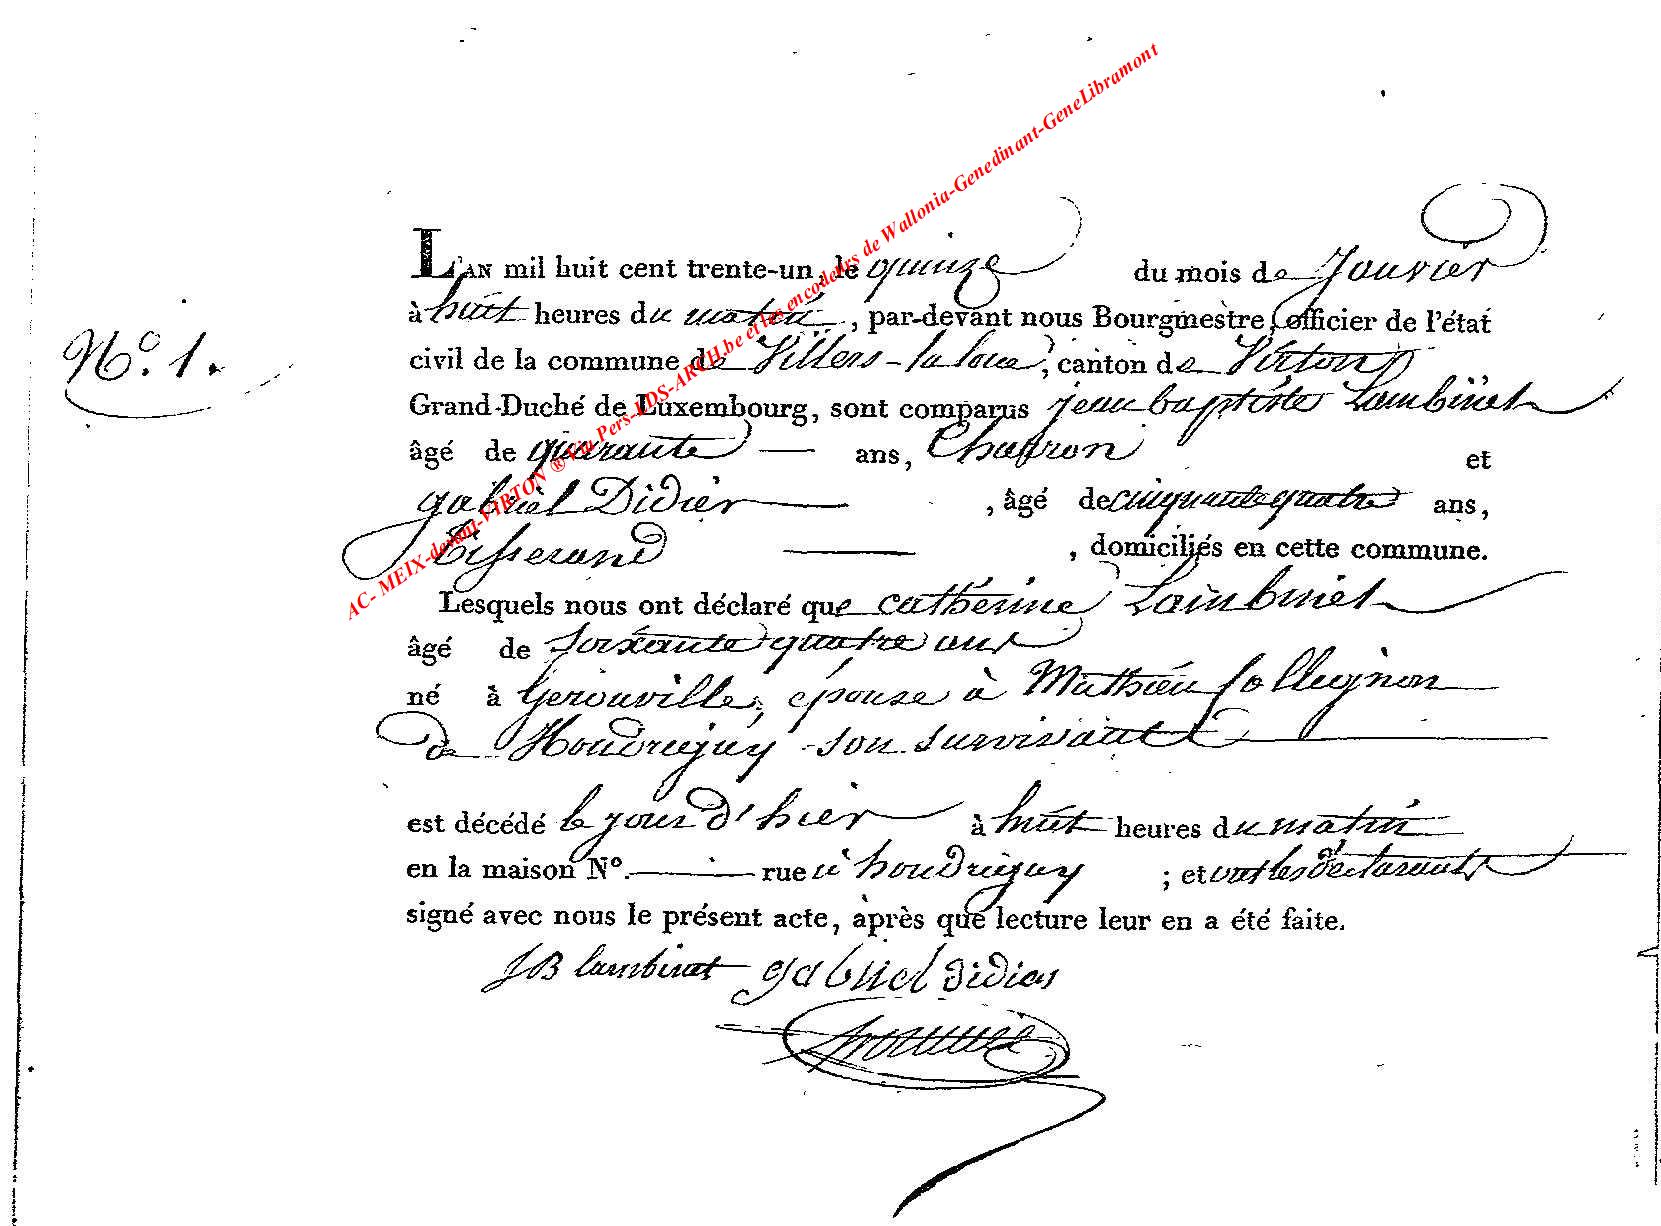 AC- MEIX-devant-VIRTON ® Via Pers-LDS-ARCH.be et les encodeurs de Wallonia-Genedinant-GeneLibramont
N.º 1.
L'AN mil huit cent trente-un, le quinze du mois de Janvier
à huit heures du matin, par-devant nous Bourgmestre, officier de l'état
civil de la commune de Villers-la loue, canton de Virton
Grand-Duché de Luxembourg, sont comparus jean baptiste Lambinet
âgé de quarante — ans, Charron et
gabriel Didier —, âgé de cinquante quatre ans,
Tisserand —, domiciliés en cette commune.
Lesquels nous ont déclaré que catherine Lambinet
âgé de soixante quatre ans
né à Gerouville, épouse à Mathieu Collignon
de Houdrigny son survivant —
est décédé le jour d'hier à huit heures du matin
en la maison Nº. — rue à houdrigny ; et ont les déclarants
signé avec nous le présent acte, après que lecture leur en a été faite.
JB lambinet gabriel didier